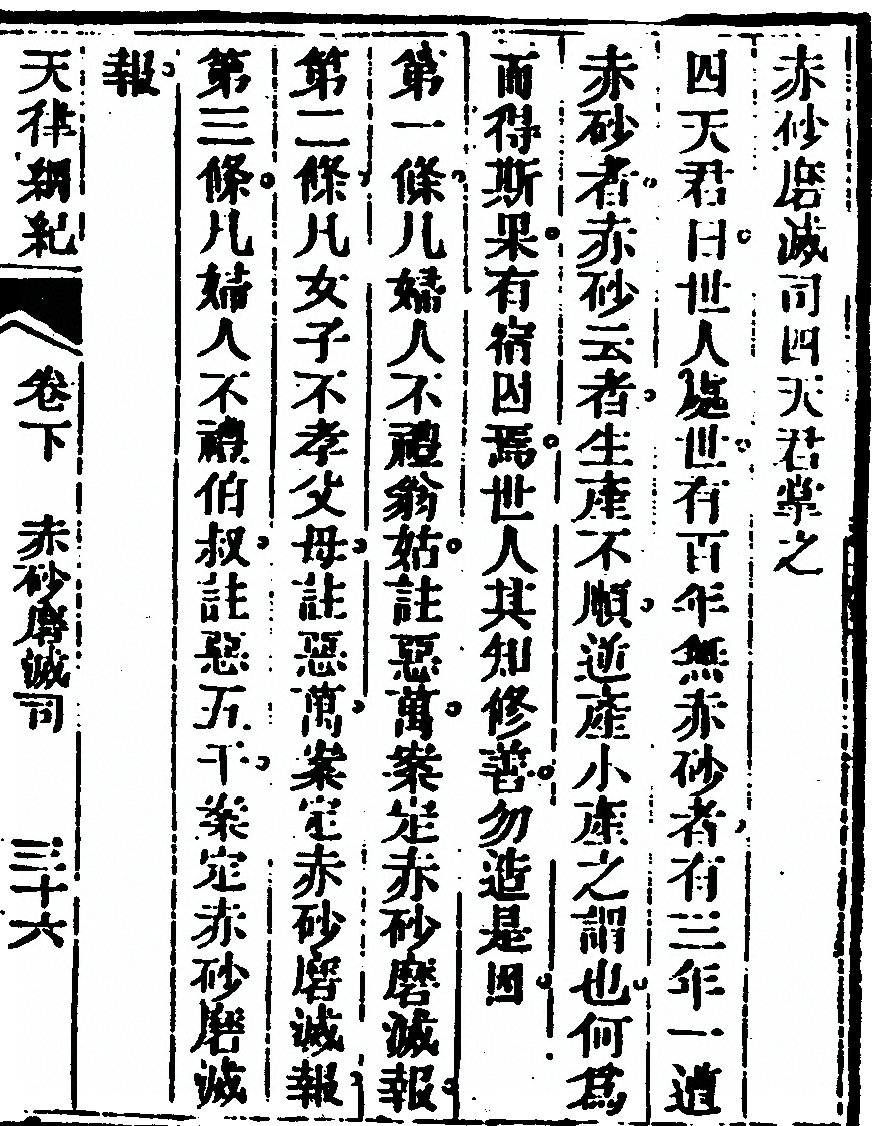 赤砂磨滅司四天君掌之
四天君曰世人處世有百年無赤砂者有三年一遭
赤砂者赤砂云者生產不順逆產小產之謂也何爲
而得斯果有宿因焉世人其知修善勿造是因
第一條凡婦人不禮翁姑註惡萬案定赤砂磨滅報
第二條凡女子不孝父母註惡萬案定赤砂磨滅報
第三條凡婦人不禮伯叔註惡五千案定赤砂磨滅
報
天律綱紀 卷下 赤砂磨滅司 三十六